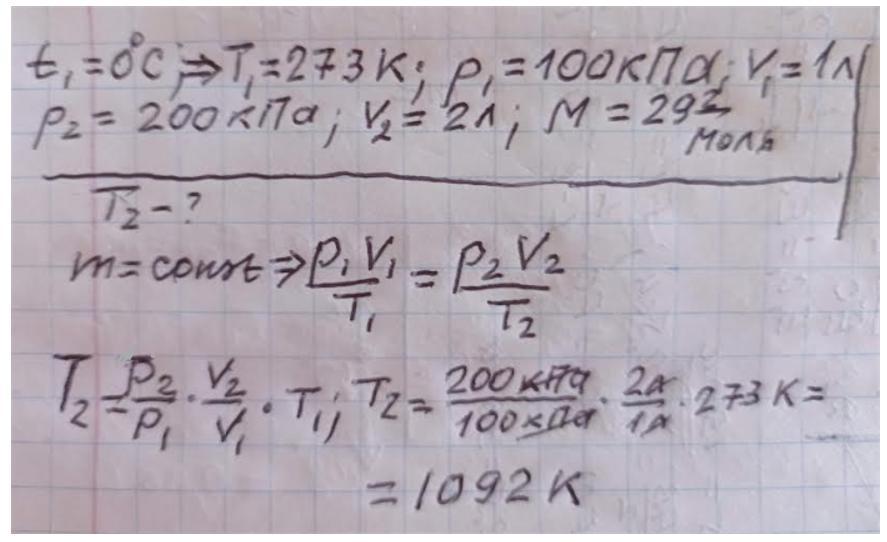 t₁=0°C; ⇒T₁=273K; p₁=100кПа; V₁=1л
p₂=200кПа; V₂=2л; M=29г/моль
T₂-?
m=const⇒p₁V₁/T₁=p₂V₂/T₂
T₂=p₂/p₁·V₂/V₁·T₁; T₂=200кПа/100кПа·2л/1л·273K=
=1092K